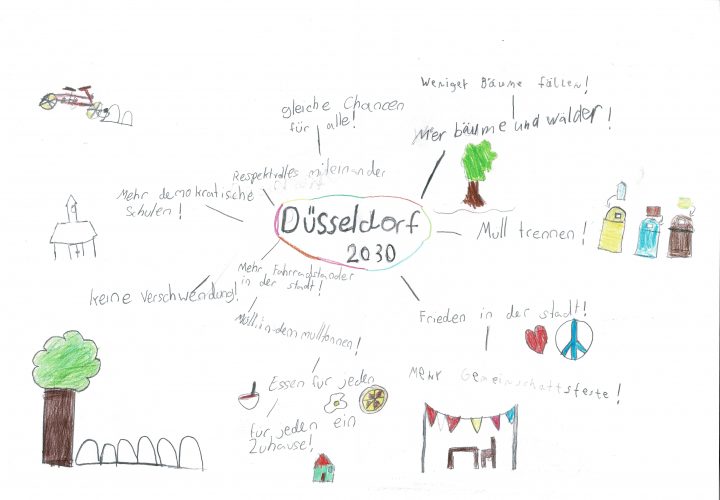 Weniget Bäume fällen!
gleiche Chancen
für alle!
Mer bäume und wälder!
Respektvolles miteinander
Mehr demokratische
Schulen!
Düsseldorf
2030
Müll trennen!
Mehr Fahrradständer
in der stadt!
keine verschwendung!
Frieden in der stadt!
Müll in den mülltonnen!
Mehr Gemeinschaftsfeste!
Essen für jeden
für jeden ein
Zuhause!